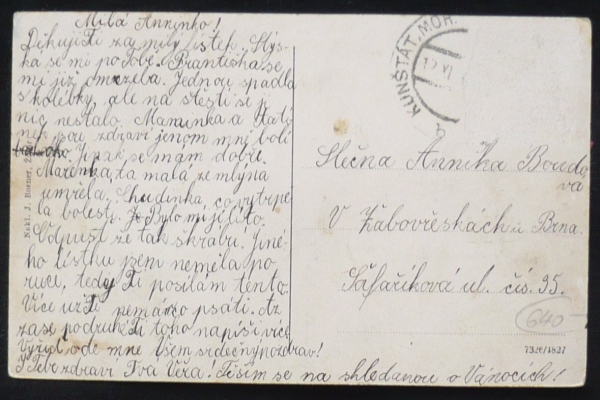 Milá Anninko!
Děkuji Ti za milý lístek. Hys-
ka se mi podobe. Frantiska se
mi již omrzela. Jednou spadla
s kolébky, ale na štěstí se jí
nic nestalo. Maminka a Tatí
nek jsou zdraví jenom mně bolí
oko. Jinak se mám dobře.
Mařenka, ta malá ze mlýna
umřela. Chudinka, co vytrpe
la bolesti. Je Bylo mi jí líto.
Odpusť že tak škrábu. Jiné-
ho lístku jsem neměla po
ruce, tedy Ti posílám tento.
Více už Ti nemám co psáti. Až
zase podruhé Ti toho napíši více
Vyřiď ode mne všem srdečný pozdrav!
I Tebe zdraví Tvá Věra! Těším se na shledanou o Vánocích!
Nakl. J. Busner, 2
KUNŠTÁT, MOR.
12 VI
a
Slečna Annika Boudo
vá
V Žabovřeskách u Brna.
Šafaříková ul. čís. 35.
640-
7326/1827